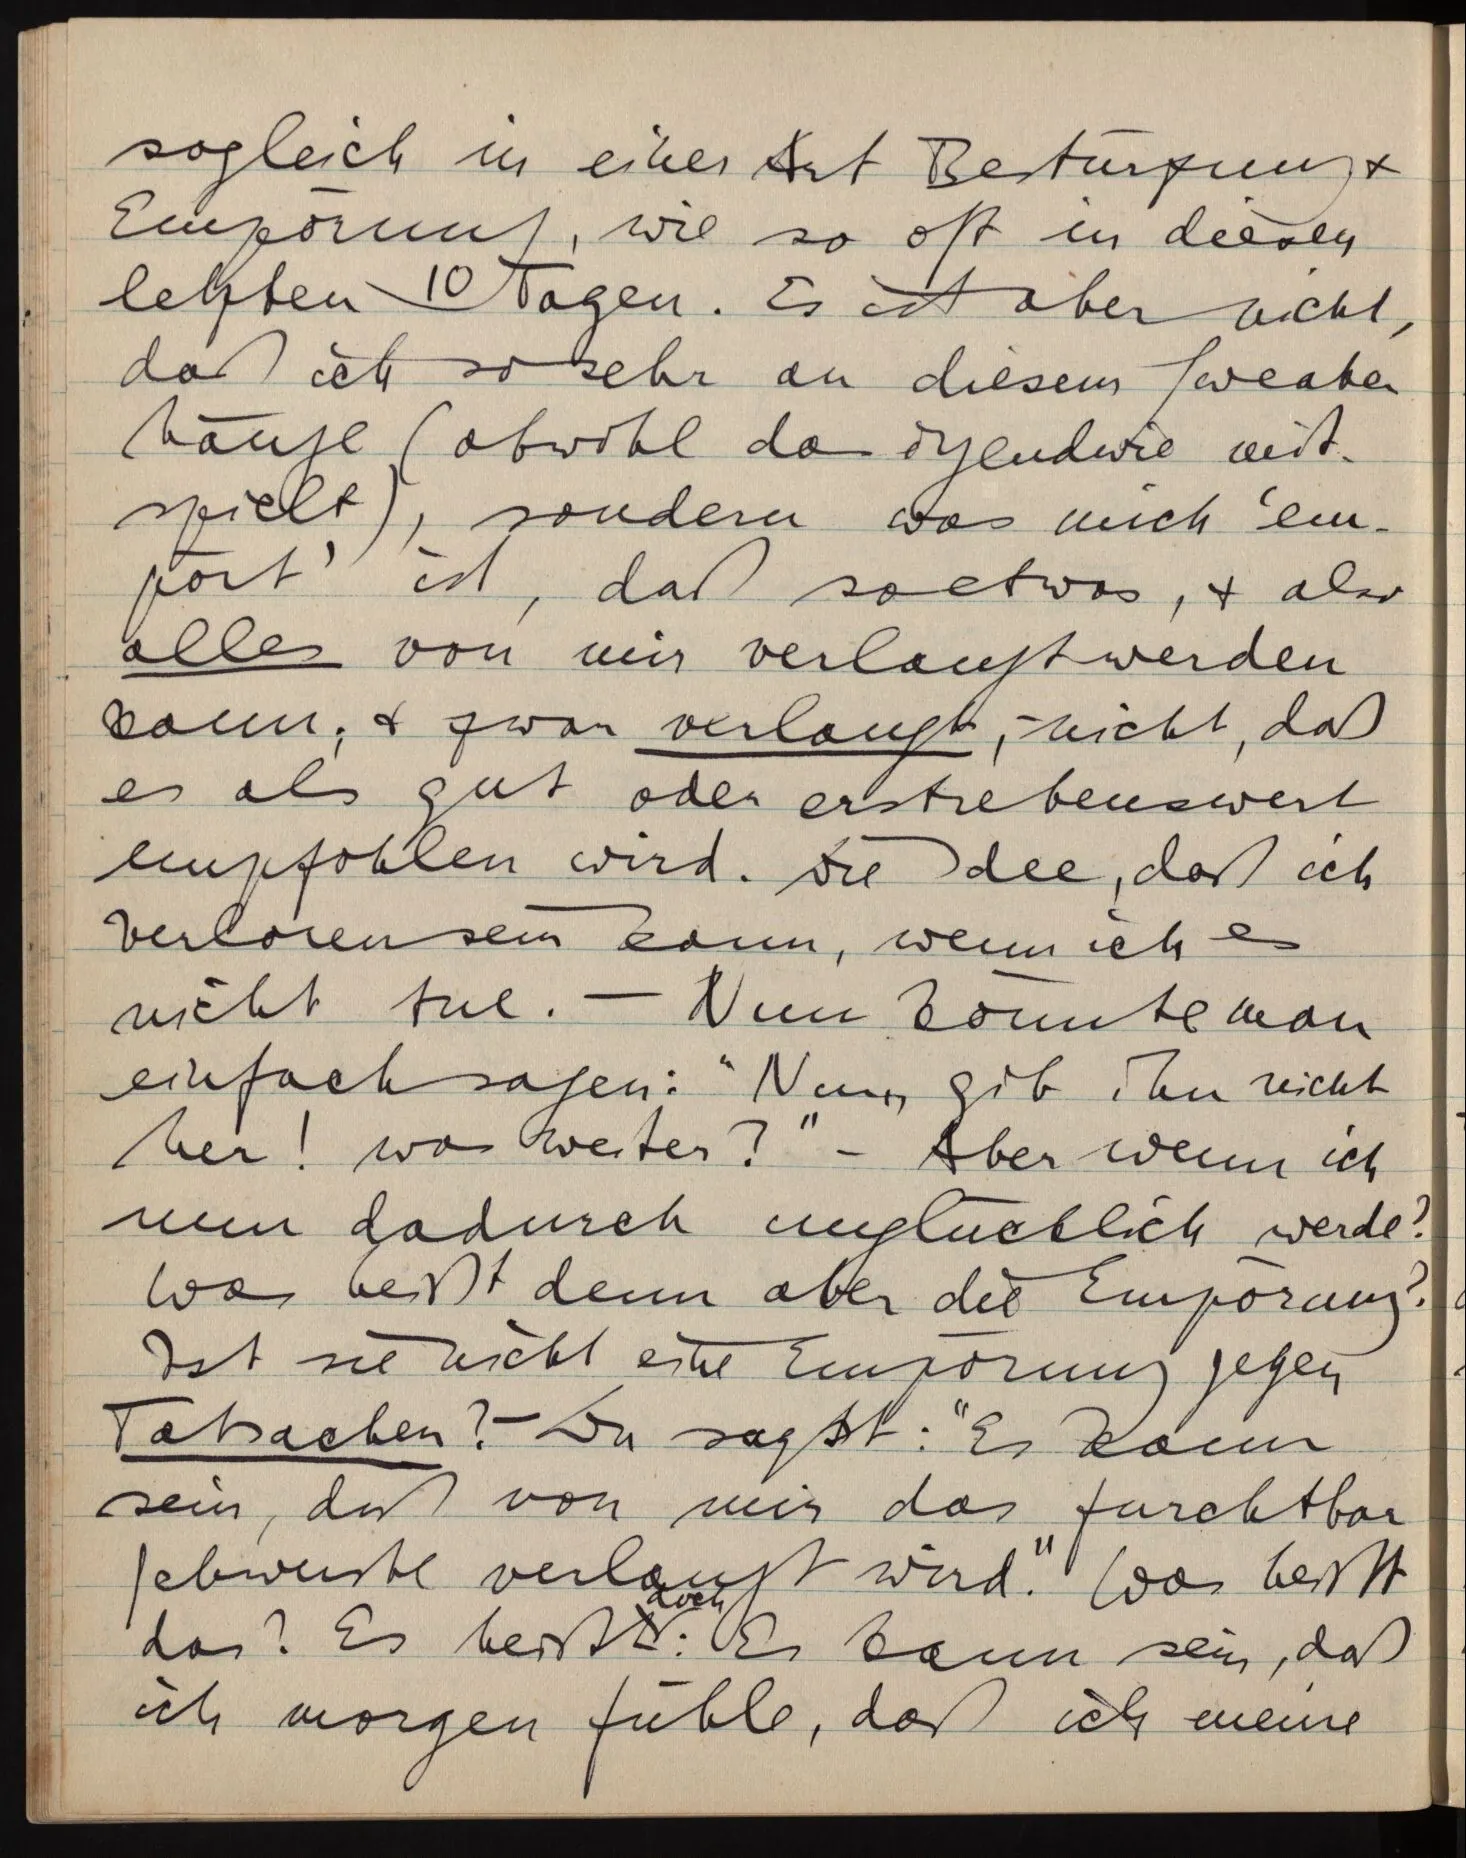 sogleich in einer Art Bestürzung &
Empörung, wie so oft in diesen
letzten 10 Tagen. Es ist aber nicht,
daß ich so sehr an diesem Sweater
hänge (obwohl das irgendwie mit-
spielt), sondern was mich ‘em-
pört’ ist, daß soetwas, & also
alles von mir verlangt werden
kann; & zwar verlangt, – nicht, daß
es als gut oder erstrebenswert
empfohlen wird. Die Idee, daß ich
verloren sein kann, wenn ich es
nicht tue. — Nun könnte man
einfach sagen: “Nun, gib ihn nicht
her! was weiter?” – Aber wenn ich
nun dadurch unglücklich werde?
Was heißt denn aber die Empörung?
Ist sie nicht eine Empörung gegen
Tatsachen? – Du sagst: “Es kann
sein, daß von mir das furchtbar
schwerste verlangt wird.” Was heißt
das? Es heißt doch: Es kann sein, daß
ich morgen fühle, daß ich meine